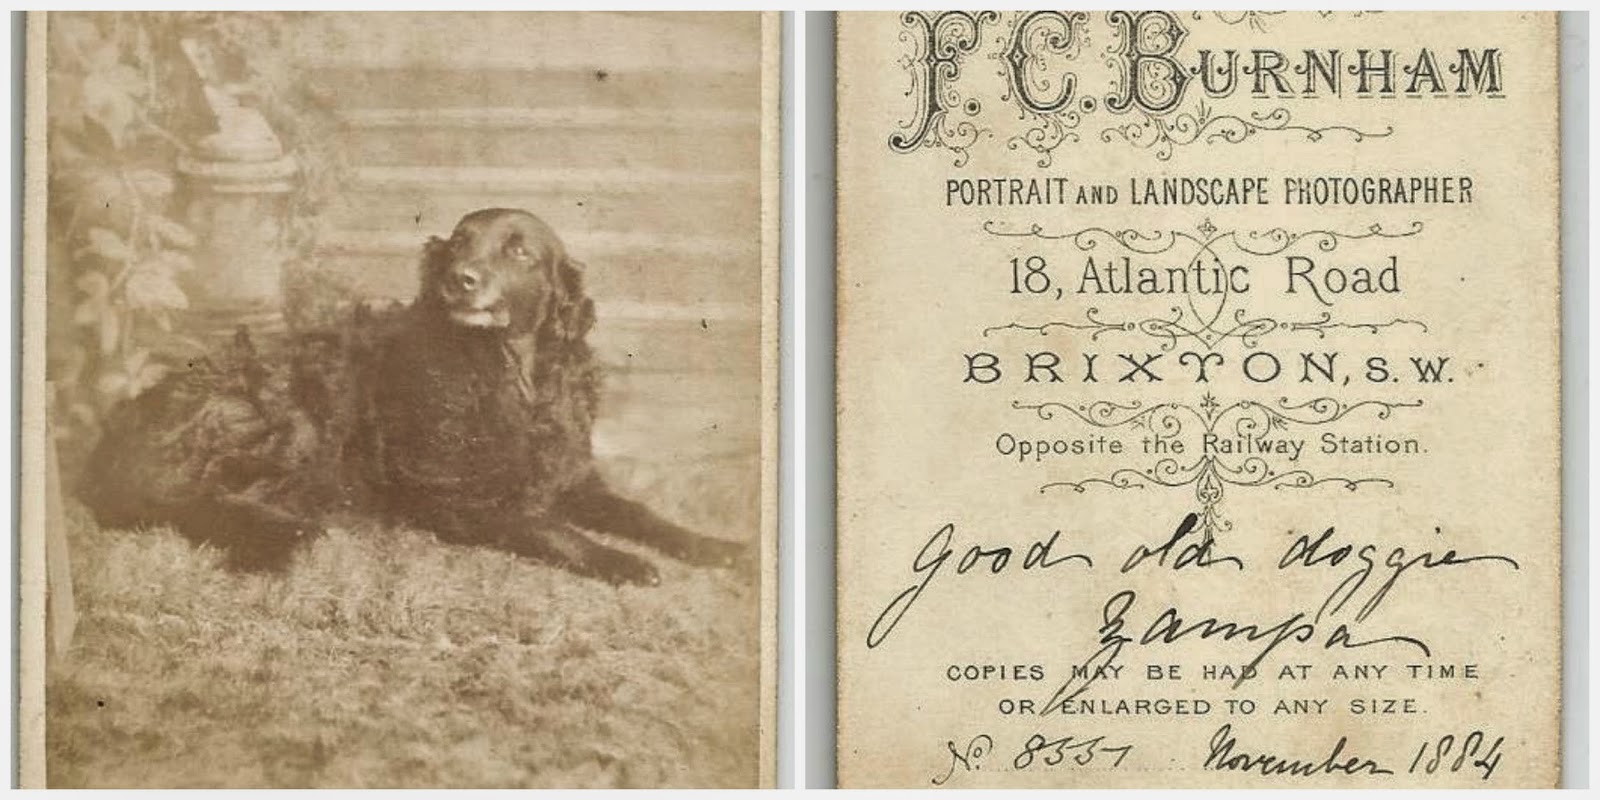 F.C. BURNHAM
PORTRAIT AND LANDSCAPE PHOTOGRAPHER
18, Atlantic Road
BRIXTON, S.W.
Opposite the Railway Station.
Good old doggie
Zampa
COPIES MAY BE HAD AT ANY TIME
OR ENLARGED TO ANY SIZE.
No. 8557 November 1884